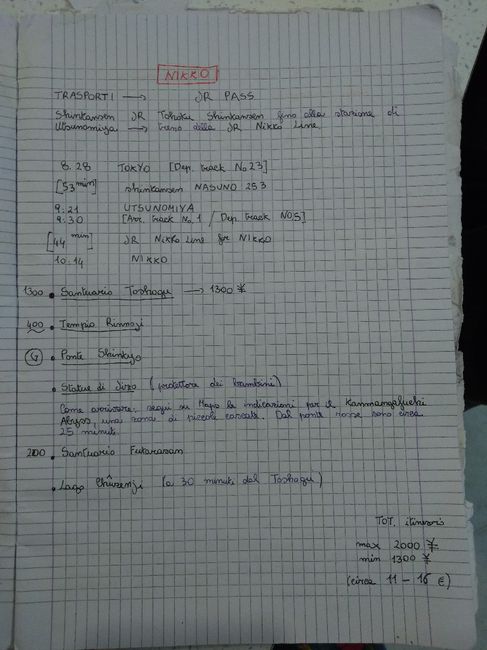 NIKKO
TRASPORTI → JR PASS
Shinkansen JR Tohoku Shinkansen fino alla stazione di
Utsunomiya → treno della JR Nikko Line
8.28 TOKYO [Dep. track No 23]
[53 min] shinkansen NASUNO 253
9:21 UTSUNOMIYA
9:30 [Arr. track No. 1 / Dep. track NO5]
[44 min] JR Nikko Line for NIKKO
10.14 NIKKO
1300 • Santuario Toshogu → 1300 ¥
400 • Tempio Rinnoji
• Ponte Shinkyo
• Statue di Jizo (protettore dei bambini)
Come arrivare: segui su Maps le indicazioni per il Kanmangafuchi
Abyss, una zona di piccole cascate. Dal ponte rosso sono circa
25 minuti
200 • Santuario Futarasan
• Lago Chūzenji (a 30 minuti dal Toshogu)
TOT. itinerario
max 2000 ¥
min 1300 ¥
(circa 11 - 16 €)